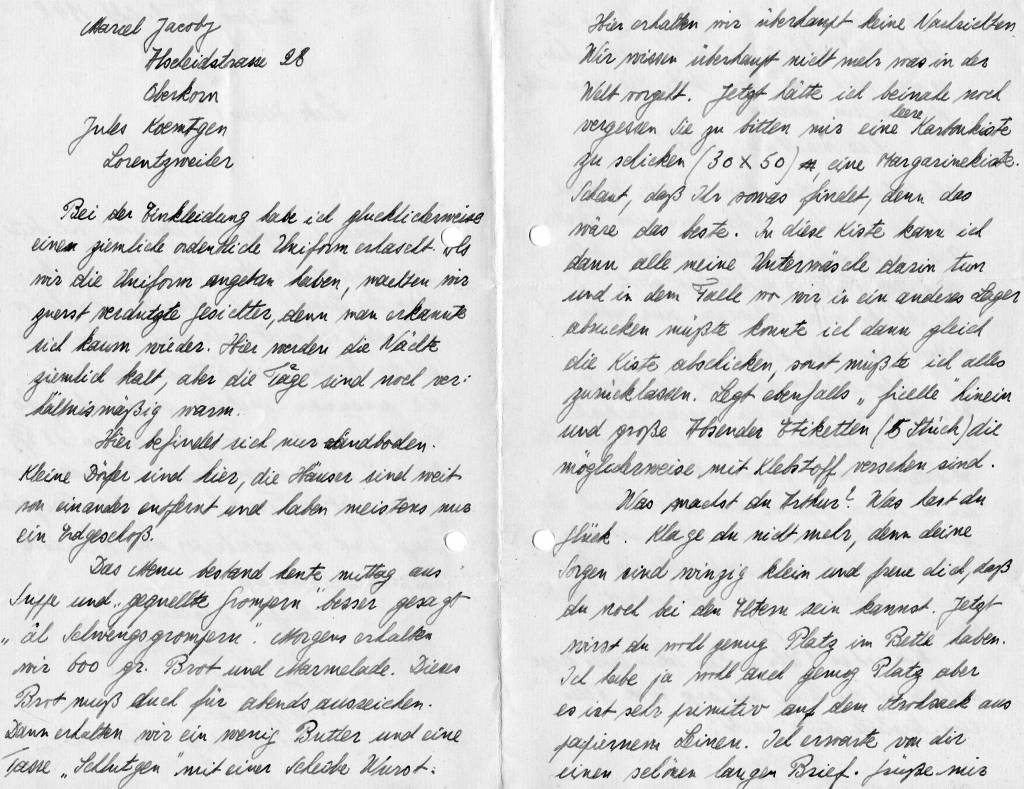 Marcel Jacoby
Alscheidstrasse 28
Oberkorn
Jules Koemtgen
Lorentzweiler
Bei der Einkleidung habe ich glucklicherweise
einen ziemliche ordentliche Uniform erhascht. Als
wir die Uniform angetan haben, machten wir
zuerst verdutzte Gesichter, denn man erkannte
sich kaum wieder. Hier werden die Nächte
ziemlich kalt, aber die Täge sind noch ver-
hältnismäßig warm.
Hier befindet sich nur Sandboden.
Kleine Dörfer sind hier, die Häuser sind weit
von einander entfernt und haben meistens nur
ein Erdgeschoß.
Das Menu bestand heute mittag aus
Suppe und „gequellte Grompern" besser gesagt
„äl Schwengsgrompern". Morgens erhalten
wir 600 gr. Brot und Marmelade. Dieses
Brot muß auch für abends ausreichen.
Dann erhalten wir ein wenig Butter und eine
Tasse „Schlutgen" mit einer Scheibe Wurst.
Hier erhalten wir überhaupt keine Nachrichten.
Wir wissen überhaupt nicht mehr was in der
Welt vorgeht. Jetzt hätte ich beinahe noch
vergessen Sie zu bitten mir eine leere Kartonkiste
zu schicken (30 X 50), eine Margarinekiste.
Schaut, daß Ihr sowas findet, denn das
wäre das beste. In diese Kiste kann ich
dann alle meine Unterwäsche darin tun
und in dem Falle wo wir in ein anderes Lager
abrucken müßte konnte ich dann gleich
die Kiste abschicken, sonst müßte ich alles
zurücklassen. Legt ebenfalls „ficelle" hinein
und große Absender Etiketten (5 Stück) die
möglicherweise mit Klebstoff versehen sind.
Was machst du Arthur? Was hast du
Glück. Klage du nicht mehr, denn deine
Sorgen sind winzig klein und freue dich, daß
du noch bei den Eltern sein kannst. Jetzt
wirst du wohl genug Platz im Bette haben.
Ich habe ja wohl auch genug Platz aber
es ist sehr primitiv auf dem Strohsack aus
papiernem Leinen. Ich erwarte von dir
einen schönen langen Brief. Grüße mir